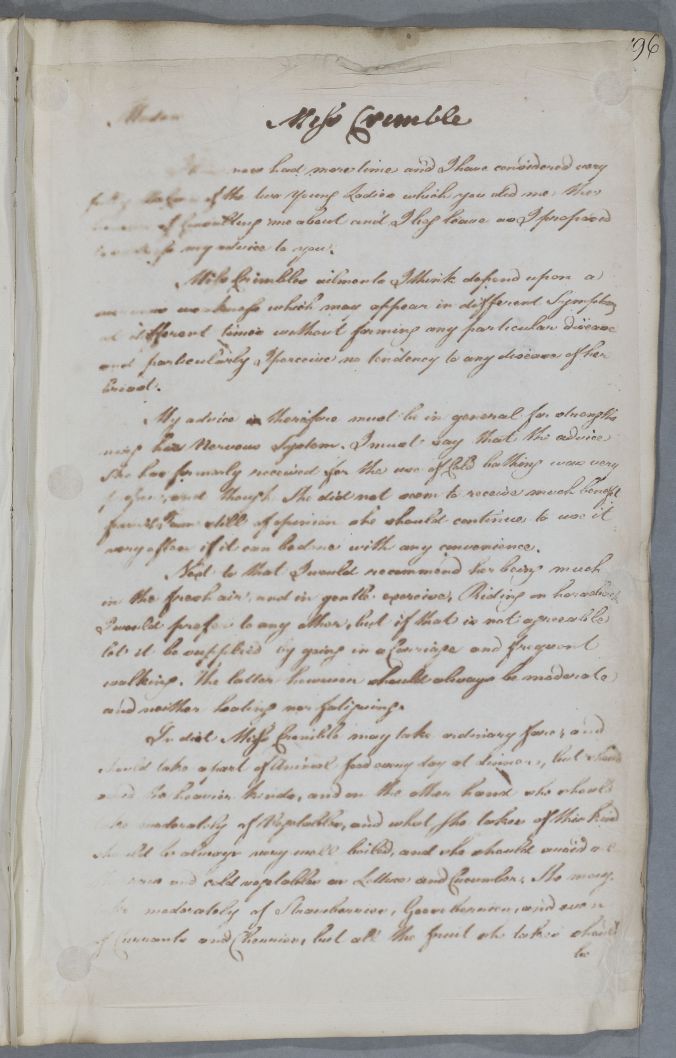 196
Madam
Miss Crumble
now had more time and I have considered very
of the two young Ladies which you did me the
of consulting me about and I beg leave as I proposed
my advice to you.
Miss Crumbles ailments I think depend upon a
weakness which may appear in different Symptoms
at different times without forming any particular disease
and particularly I perceive no tendency to any disease of her
breast.
My advice therefore must be in general for strengthe
ning her Nervous System. I must say that the advice
she has formerly received for the use of Cold bathing was very
proper, and though She did not seem to receive much benefit
from it I am still of opinion she should continue to use it
very often if it can be done with any convenience.
Next to that I would recommend her being much
in the fresh air and in gentle exercise, Riding on horseback
I would prefer to any other, but if that is not agreeable
let it be supplied by going in a Carriage and frequent
walking. The latter however should always be moderate
and neither heating nor fatiguing.
In diet Miss Crumble may take ordinary fare, and
should take a part of Animal food every day at dinner, but should
avoid the heavier kinds, and on the other hand she should
take moderately of Vegetables, and what she takes of this kind
should be always very well boiled, and she should avoid all
and cold vegetables as Lettuce and Cucumber, She may
moderately of Strawberries, Gooseberries, and even
of Currants and Cherries, but all the fruit she takes should
be